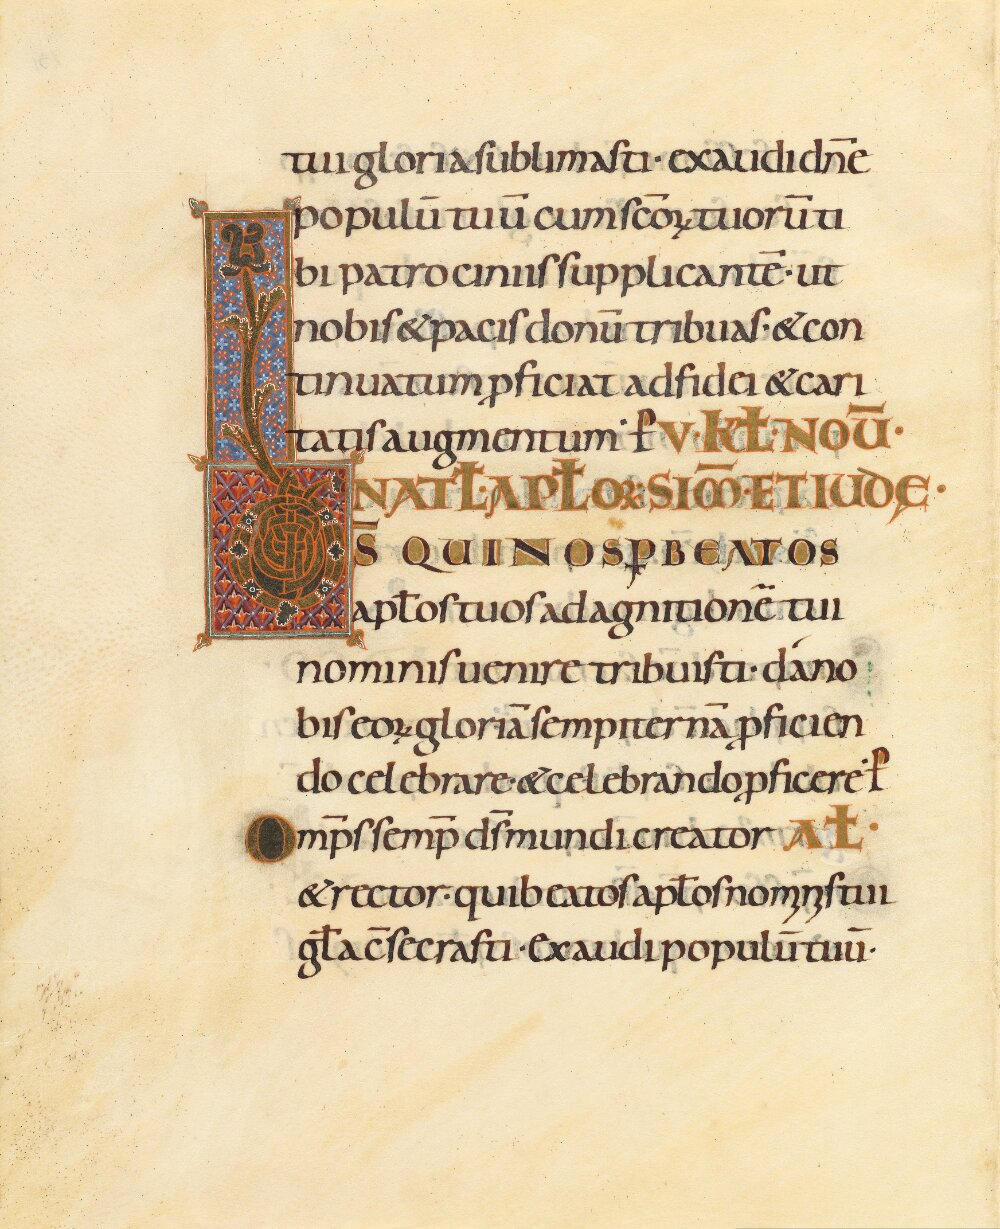 tui gloria sublimasti· exaudi dn̄e
populū tuū cum sc̄oꝝ tuorū ti
bi patrociniis supplicantē· ut
nobis & pacis donū tribuas· & con
tinuatum ꝓficiat ad fidei & cari
tatis augmentum· ꝑ V· KŁ· NOU̅·
NATŁ· APŁOꝜ· SIM̅O· ET IUDĘ·
D S̄ QUI NOS P̲ BEATOS
apłos tuos ad agnitionē tui
nominis uenire tribuisti· dá no
bis eoꝝ gloriā sempiternā ꝓficien
do celebrare· & celebrando ꝓficere· ꝑ
Omp̄s semp̄ ds̄ mundi creator AŁ·
& rector· qui beatos apłos nom̄is tui
gła c̄secrasti· exaudi populū tuū·